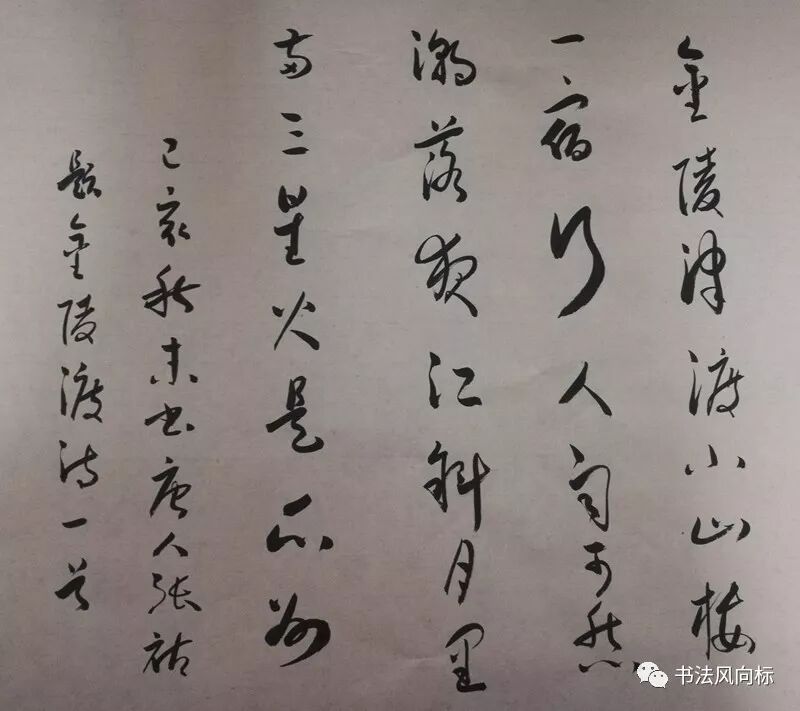 金陵津渡小山楼
一宿行人自可愁
潮落夜江斜月里
两三星火是瓜州
己亥秋末书唐人张祜
题金陵渡诗一首
书法风向标